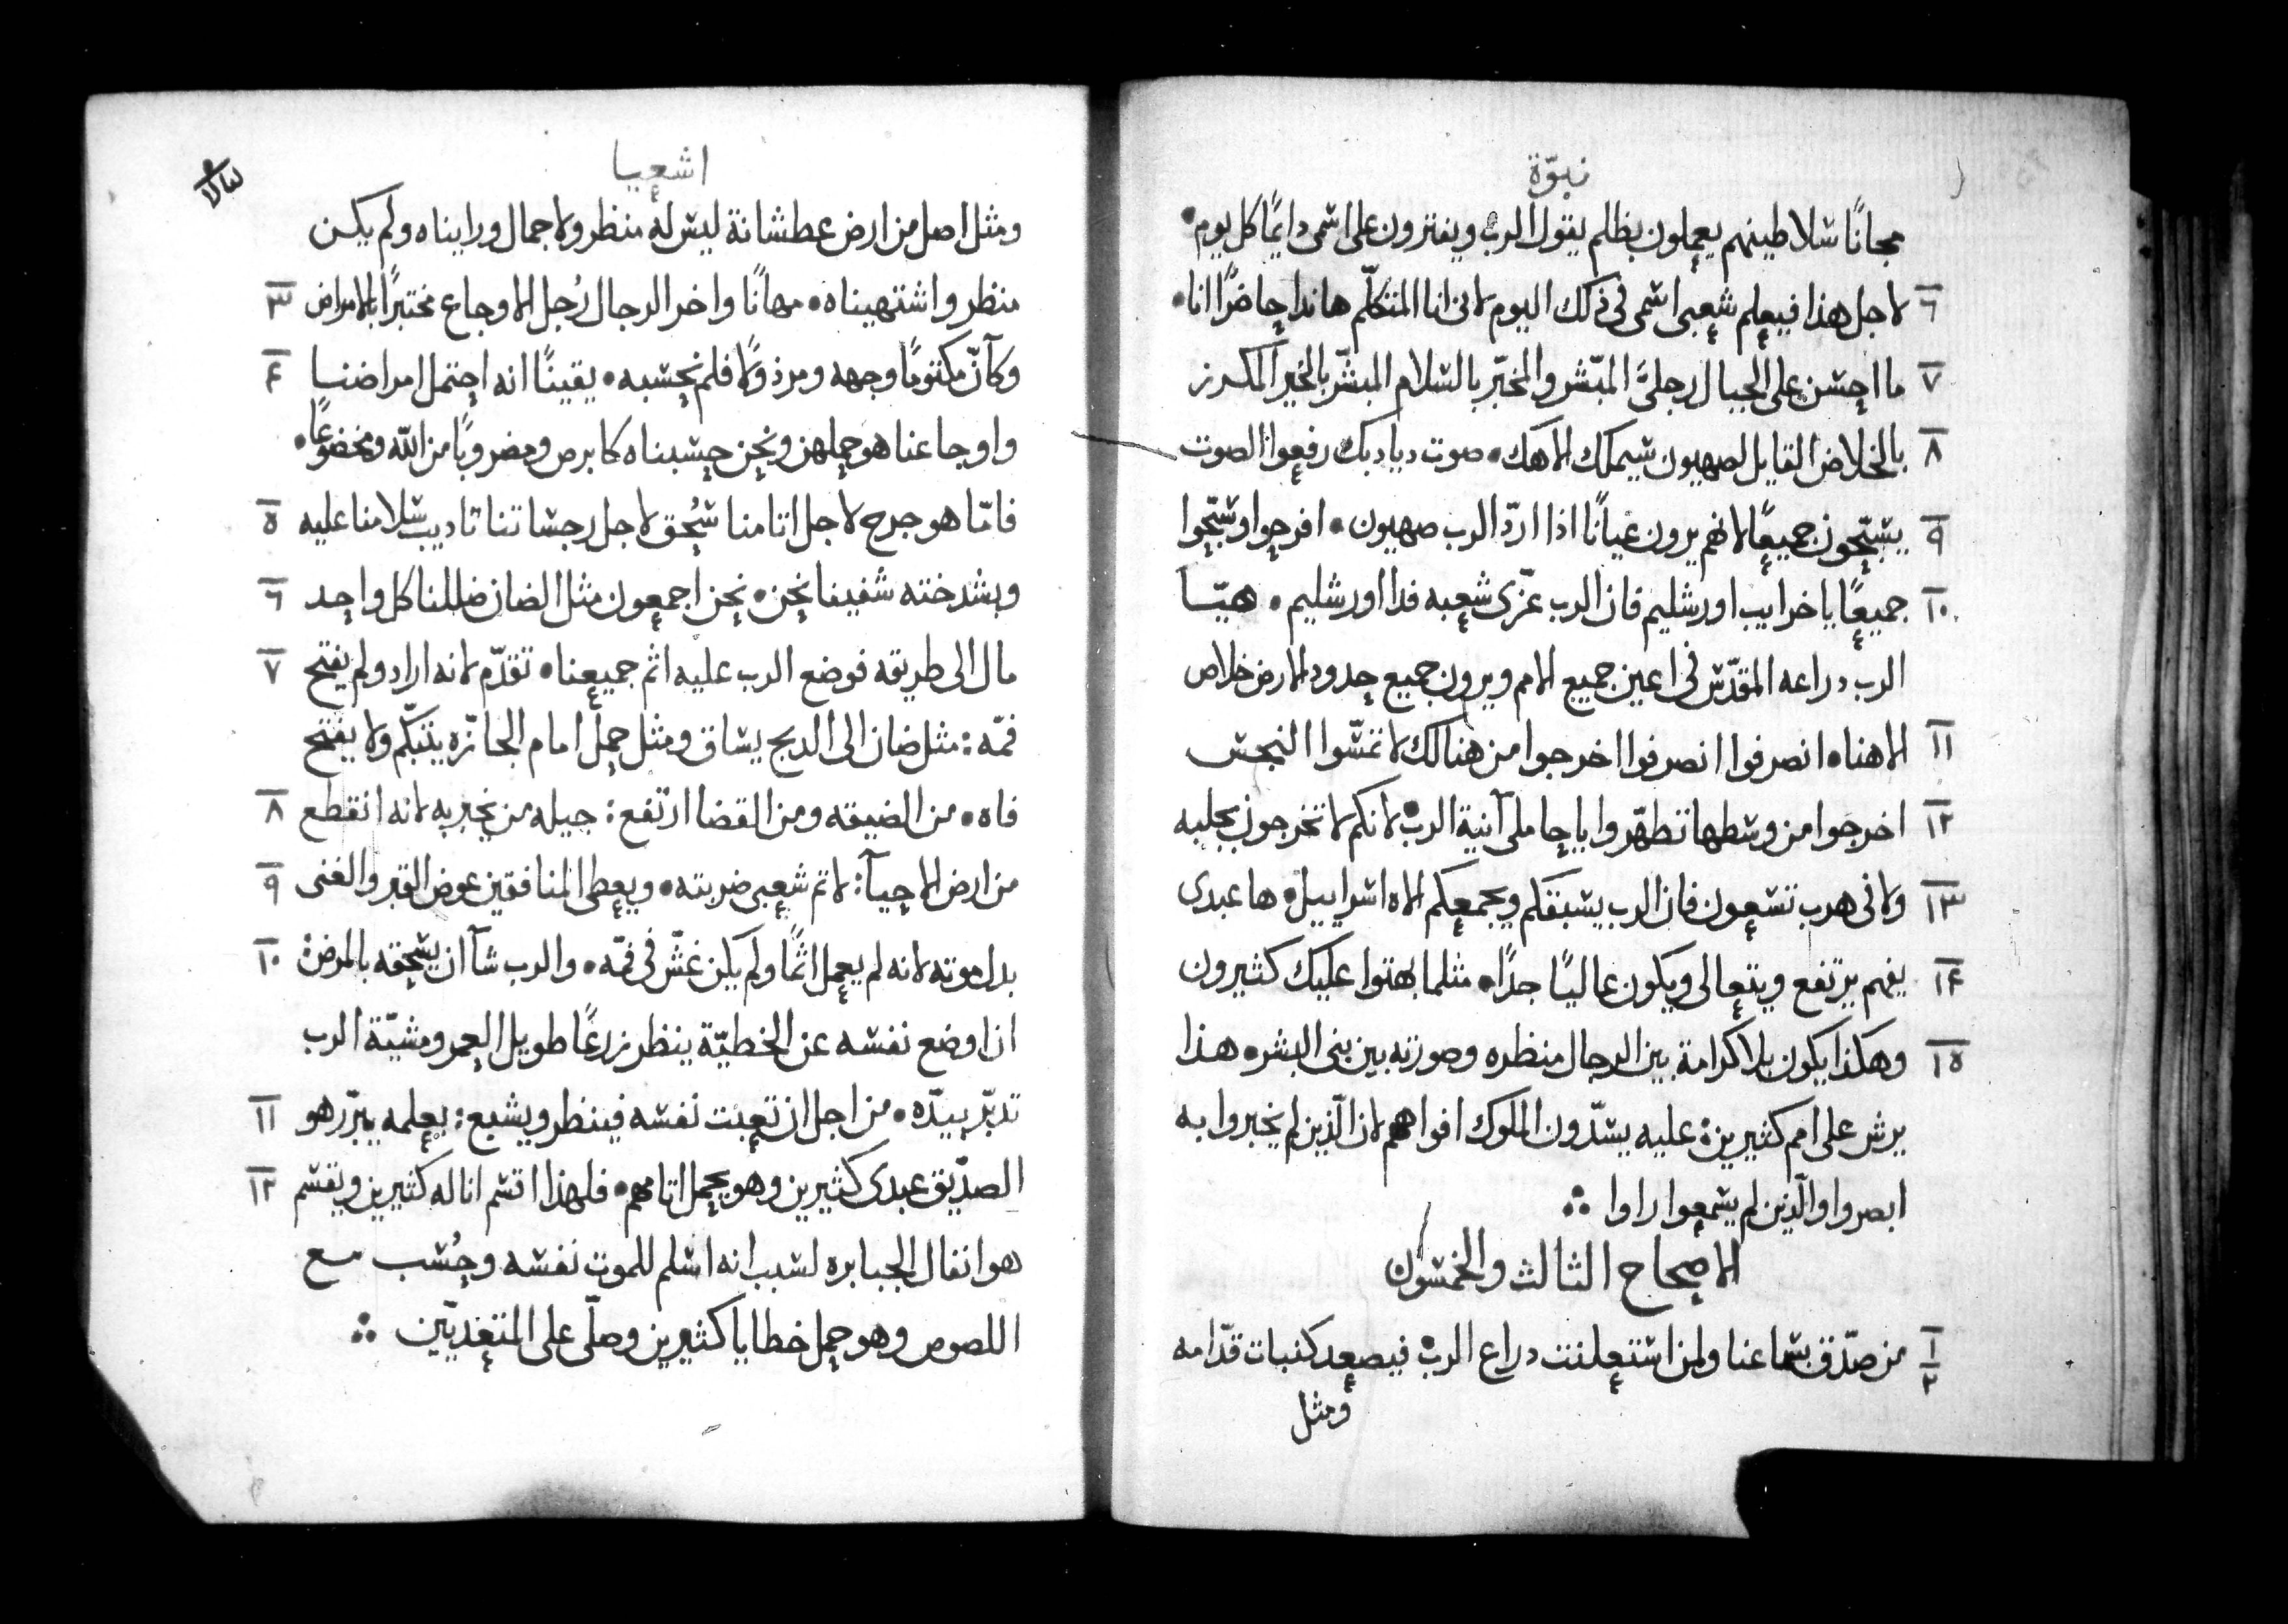 نبوّة
مجانًا شلاطينهم يعملون بظلم يقول الرب ويفترون على اشمى دايمًا كل يوم •
٦ لاجل هذا فيعلم شعبى اشمى فى ذلك اليوم لانى انا المتكلّم هاندا حاضرًا انا •
٧ ما احشن على الجبال رجلىّ المبّشر والمخبّر بالشلام المبشّر بالخير المكرز
٨ بالخلاص القايل لصهيون شيملك الاهك • صوت ديادبك رفعوا الصوت
٩ يشبّحون جميعًا لانهم يرون عيانًا اذا اردّ الرب صهيون • افرحوا وشبّحوا
١٠ جميعًا يا خرايب اورشليم فان الرب عزّى شعبه فدا اورشليم • هيّا
الرب دراعه المقدّش فى اعين جميع الامم ويرون جميع حدود الارض خلاص
١١ الاهنا • انصرفوا انصرفوا اخرجوا من هنالك لا تمشّوا النجش
١٢ اخرجوا من وشطها تطهّروا يا حاملى آنية الرب • لانكم لا تخرجون بجلبه
١٣ ولا فى هرب تشعون فان الرب يشبقكم ويجمعكم الاه اشراييل • ها عبدى
١٤ يفهم يرتفع ويتعالى ويكون عاليًا جدًا • مثلما بهتوا عليك كثيرون
١٥ وهكذا يكون بلا كرامة بين الرجال منظره وصورته بين بنى البشر • هذا
يرش على امم كثيرين • عليه يشدّون الملوك افواههم لان الّذين لم يخبروا به
ابصروا والّذين لم يشمعوا راوا ∴
الاصحاح الثالث والخمشون
١ ٢ من صدّق بشماعنا ولمن اشتعلنت دراع الرب • فيصعد كنبات قدّامه
ومثل
اشعيا
ومثل اصل من ارض عطشانة ليش له منظر ولا جمال ورايناه ولم يكن
٣ منظر واشتهيناه • مهانًا واخر الرجال رُجل الاوجاع مختبرًا بالامراض
٤ وكآنّ مكتومًا وجهه ومرذولًا فلم نحشبه • يقينًا انه احتمل امراضنا
واوجاعنا هو حملهن ونحن حشبناه كابرص ومضروبًا من اللّه ومخضوعًا •
٥ فامّا هو جرح لاجل اتامنا شُحق لاجل رجشاتنا تاديب شلامنا عليه
٦ وبشدخته شفينا نحن • نحن اجمعون مثل الضان ضللنا كل واحد
٧ مال الى طريقه فوضع الرب عليه اثم جميعنا • تقدّم لانه اراد ولم يفتح
فمّه : مثل ضان الى الدبح يشاق ومثل حمل امام الجازّه يتبكّم ولا يفتح
٨ فاه • من الضيقه ومن القضا ارتفع : جيله من يخبر به لانه انقطع
٩ من ارض الاحيآ : لاتم شعبى ضربته • ويعطى المنافقين عوض القبر والغنى
١٠ بدل موته لانه لم يعمل اثمًا ولم يكن غشّ فى فمّه • والرب شآ ان يشحقه بالمرض •
ان اوضع نفشه عن الخطيّة ينظر زرعًا طويل العمر ومشيّة الرب
١١ تدبّر بيدّه • من اجل ان تعبت نفشه فينظر ويشبع : بعلمه يبرّر هو
١٢ الصدّيق عبدى كثيرين وهو يحمل اتامهم • فلهذا اقشم انا له كثيرين ويقشم
هو انفال الجبابره لشبب انه اشلم للموت نفشه وحُشب مع
اللصوص وهو حمل خطايا كثيرين وصلّى على المتعديّين ∴